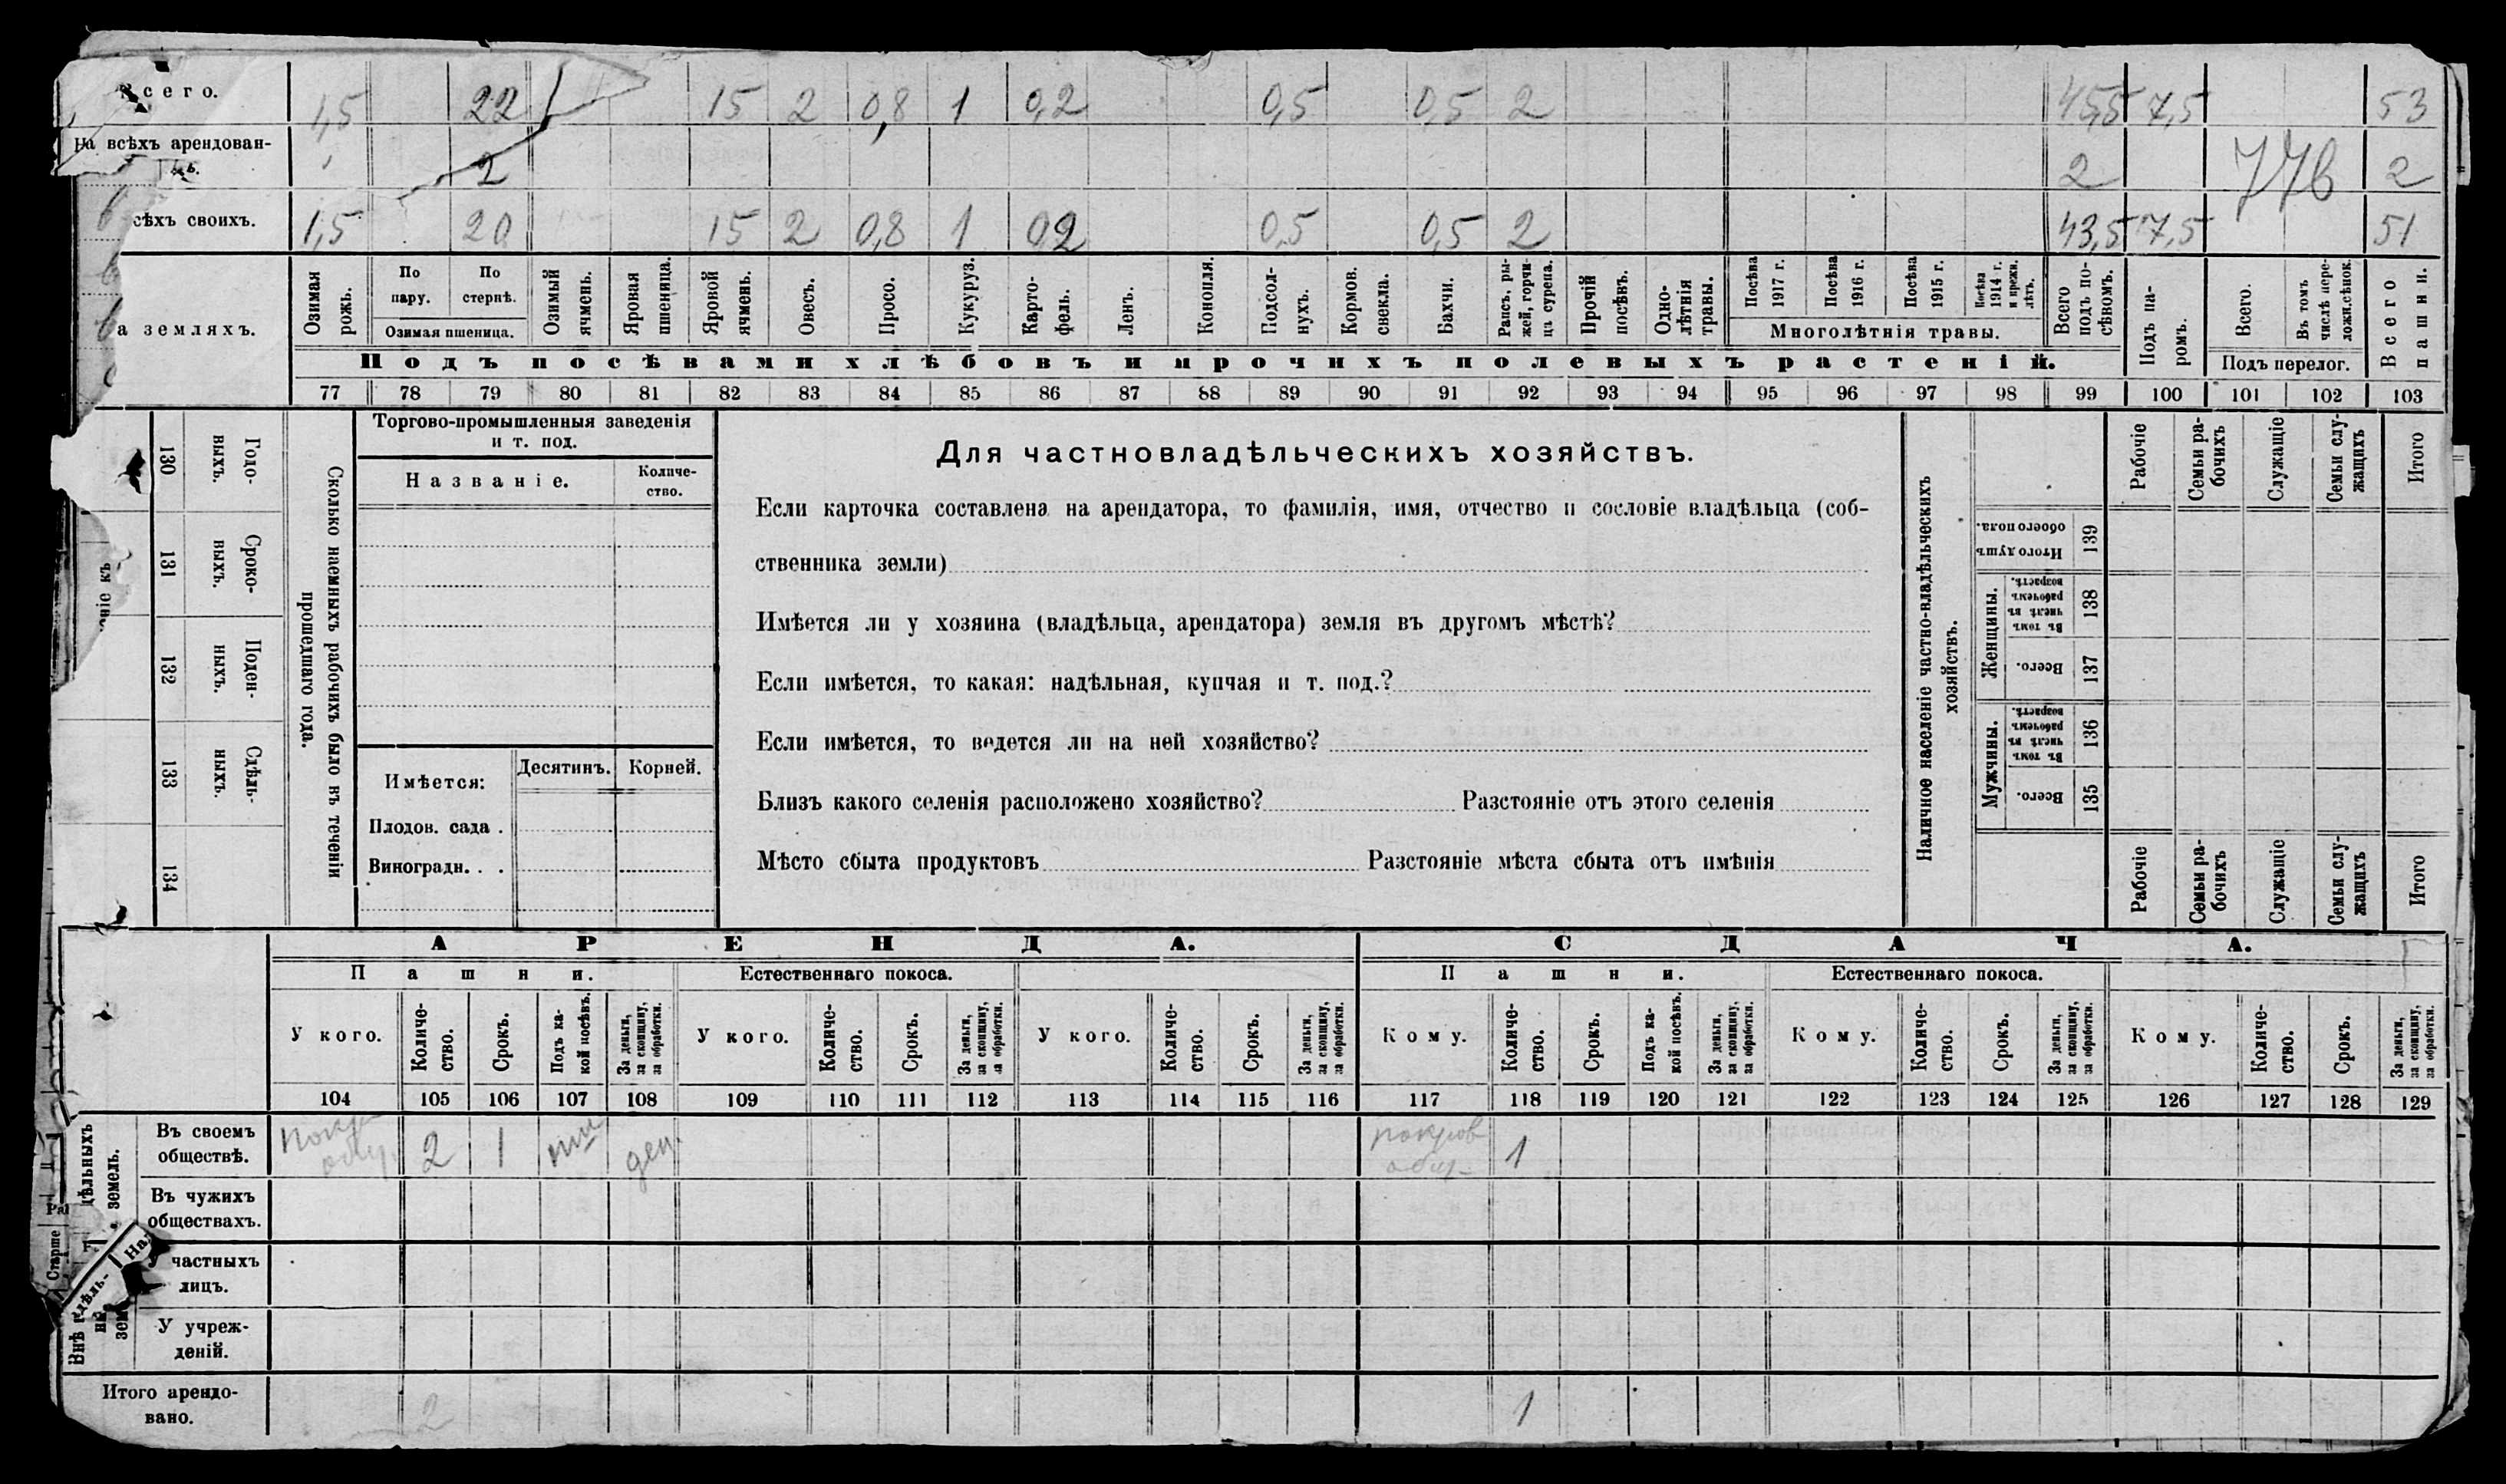 Всего. 1,5 22 15 2 0,8 1 0,2 0,5 0,5 2 45,5 7,5 53
На всѣхъ арендован-
2 2 776 2
сѣхъ своихъ. 1,5 20 15 2 0,8 1 02 0,5 0,5 2 43,5 7,5 51
а земляхъ.
Озимая рожь.
По пару.
По стернѣ.
Озимая пшеница.
Озимый ячмень.
Яровая пшеница.
Яровой ячмень.
Овесъ.
Просо.
Кукуруз.
Карто-
фель.
Ленъ.
Конопля.
Подсол-
нухъ.
Кормов. свекла.
Бахчи.
Рапсъ, ры-
жей, горчи-
ца сурепа.
Прочій посѣвъ.
Одно-
лѣтнія травы.
Посѣва 1917 г.
Посѣва 1916 г.
Посѣва 1915 г.
Посѣва 1914 г. и прежн. лѣтъ.
Многолѣтнія травы.
Всего подъ по-
сѣвомъ.
Подъ па-
ромъ.
Всего.
Въ томъ числѣ пере-
ложн. сѣнок.
Подъ перелог.
Всего пашни.
Подъ посѣвами хлѣбовъ и прочихъ полевыхъ растеній.
77 78 79 80 81 82 83 84 85 86 87 88 89 90 91 92 93 94 95 96 97 98 99 100 101 102 103
130 Годо-
выхъ.
131 Сроко-
выхъ.
132 Поден-
ныхъ.
133 Сдѣль-
ныхъ.
134
Сколько наемныхъ рабочихъ было въ теченіи
прошедшаго года.
Торгово-промышленныя заведенія
и т. под.
Названіе. Количе-
ство.
Имѣется: Десятинъ. Корней.
Плодов. сада .
Виноградн. . .
Для частновладѣльческихъ хозяйствъ.
Если карточка составлена на арендатора, то фамилія, имя, отчество и сословіе владѣльца (соб-
ственника земли)
Имѣется ли у хозяина (владѣльца, арендатора) земля въ другомъ мѣстѣ?
Если имѣется, то какая: надѣльная, купчая и т. под.?
Если имѣется, то ведется ли на ней хозяйство?
Близъ какого селенія расположено хозяйство? Разстояніе отъ этого селенія
Мѣсто сбыта продуктовъ Разстояніе мѣста сбыта отъ имѣнія
Наличное населеніе частно-владѣльческихъ
хозяйствъ.
Рабочіе
Семьи ра-
бочихъ
Служащіе
Семьи слу-
жащихъ
Итого
Итого душъ обоего пола. 139
Женщины.
Въ томъ числѣ въ рабочемъ возрастѣ. 138
Всего. 137
Мужчины.
Въ томъ числѣ въ рабочемъ возрастѣ. 136
Всего. 135
Рабочіе
Семьи ра-
бочихъ
Служащіе
Семьи слу-
жащихъ
Итого
АРЕНДА. СДАЧА.
Пашни. Естественнаго покоса. Пашни. Естественнаго покоса.
У кого. Количе-
ство. Срокъ. Подъ ка-
кой посѣвъ. За деньги, за скопщину, за обработки.
У кого. Количе-
ство. Срокъ. За деньги, за скопщину, за обработки.
У кого. Количе-
ство. Срокъ. За деньги, за скопщину, за обработки.
Кому. Количе-
ство. Срокъ. Подъ ка-
кой посѣвъ. За деньги, за скопщину, за обработки.
Кому. Количе-
ство. Срокъ. За деньги, за скопщину, за обработки.
Кому. Количе-
ство. Срокъ. За деньги, за скопщину, за обработки.
104 105 106 107 108 109 110 111 112 113 114 115 116 117 118 119 120 121 122 123 124 125 126 127 128 129
дѣльныхъ земель.
Въ своемъ
обществѣ. 2 1 ден. покров 1
Въ чужихъ
обществахъ.
Старше
Внѣ
частныхъ
лицъ.
У учреж-
деній.
Итого арендо-
вано. 2 1